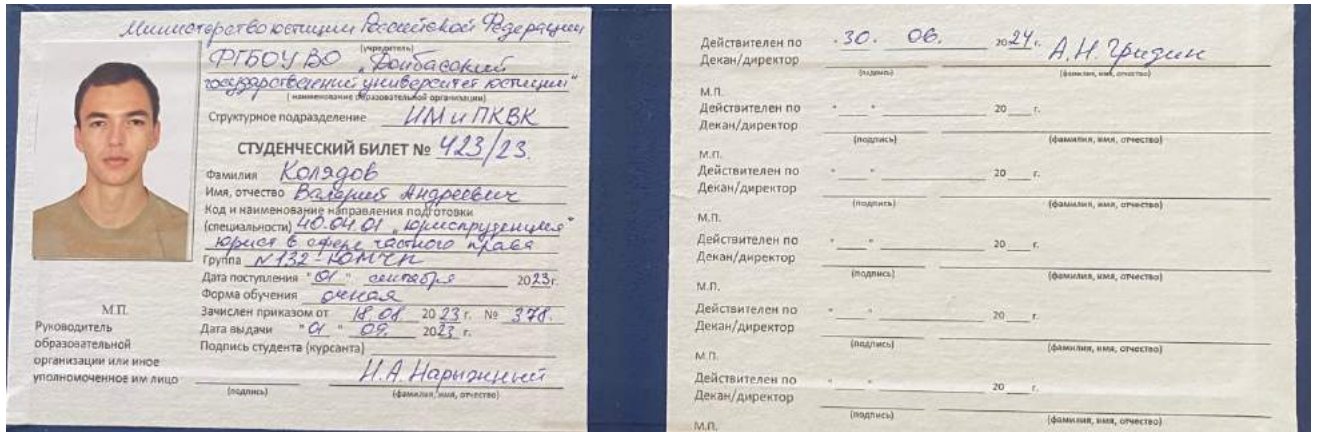 Министерство юстиции Российской Федерации
(учредитель)
ФГБОУ ВО „Донбасский
государственный университет юстиции"
(наименование образовательной организации)
Структурное подразделение ИМ и ПКВК
СТУДЕНЧЕСКИЙ БИЛЕТ № 423/23.
Фамилия Колядов
Имя, отчество Валерий Андреевич
Код и наименование направления подготовки
(специальности) 40.04.01 „Юриспруденция"
юрист в сфере частного права
Группа N132-ЮМЧП
Дата поступления "01" сентября 2023г.
Форма обучения очная
Зачислен приказом от 18.08 2023 г. № 378.
Дата выдачи "01" 09. 2023 г.
Подпись студента (курсанта)
М.П.
Руководитель
образовательной
организации или иное
уполномоченное им лицо
Н.А. Нарыжный
(подпись) (фамилия, имя, отчество)
Действителен по 30. 06. 2024г.
Декан/директор А.Н. Гридин
(подпись) (фамилия, имя, отчество)
М.П.
Действителен по " " 20 г.
Декан/директор
(подпись) (фамилия, имя, отчество)
М.П.
Действителен по " " 20 г.
Декан/директор
(подпись) (фамилия, имя, отчество)
М.П.
Действителен по " " 20 г.
Декан/директор
(подпись) (фамилия, имя, отчество)
М.П.
Действителен по " " 20 г.
Декан/директор
(подпись) (фамилия, имя, отчество)
М.П.
Действителен по " " 20 г.
Декан/директор
(подпись) (фамилия, имя, отчество)
М.П.